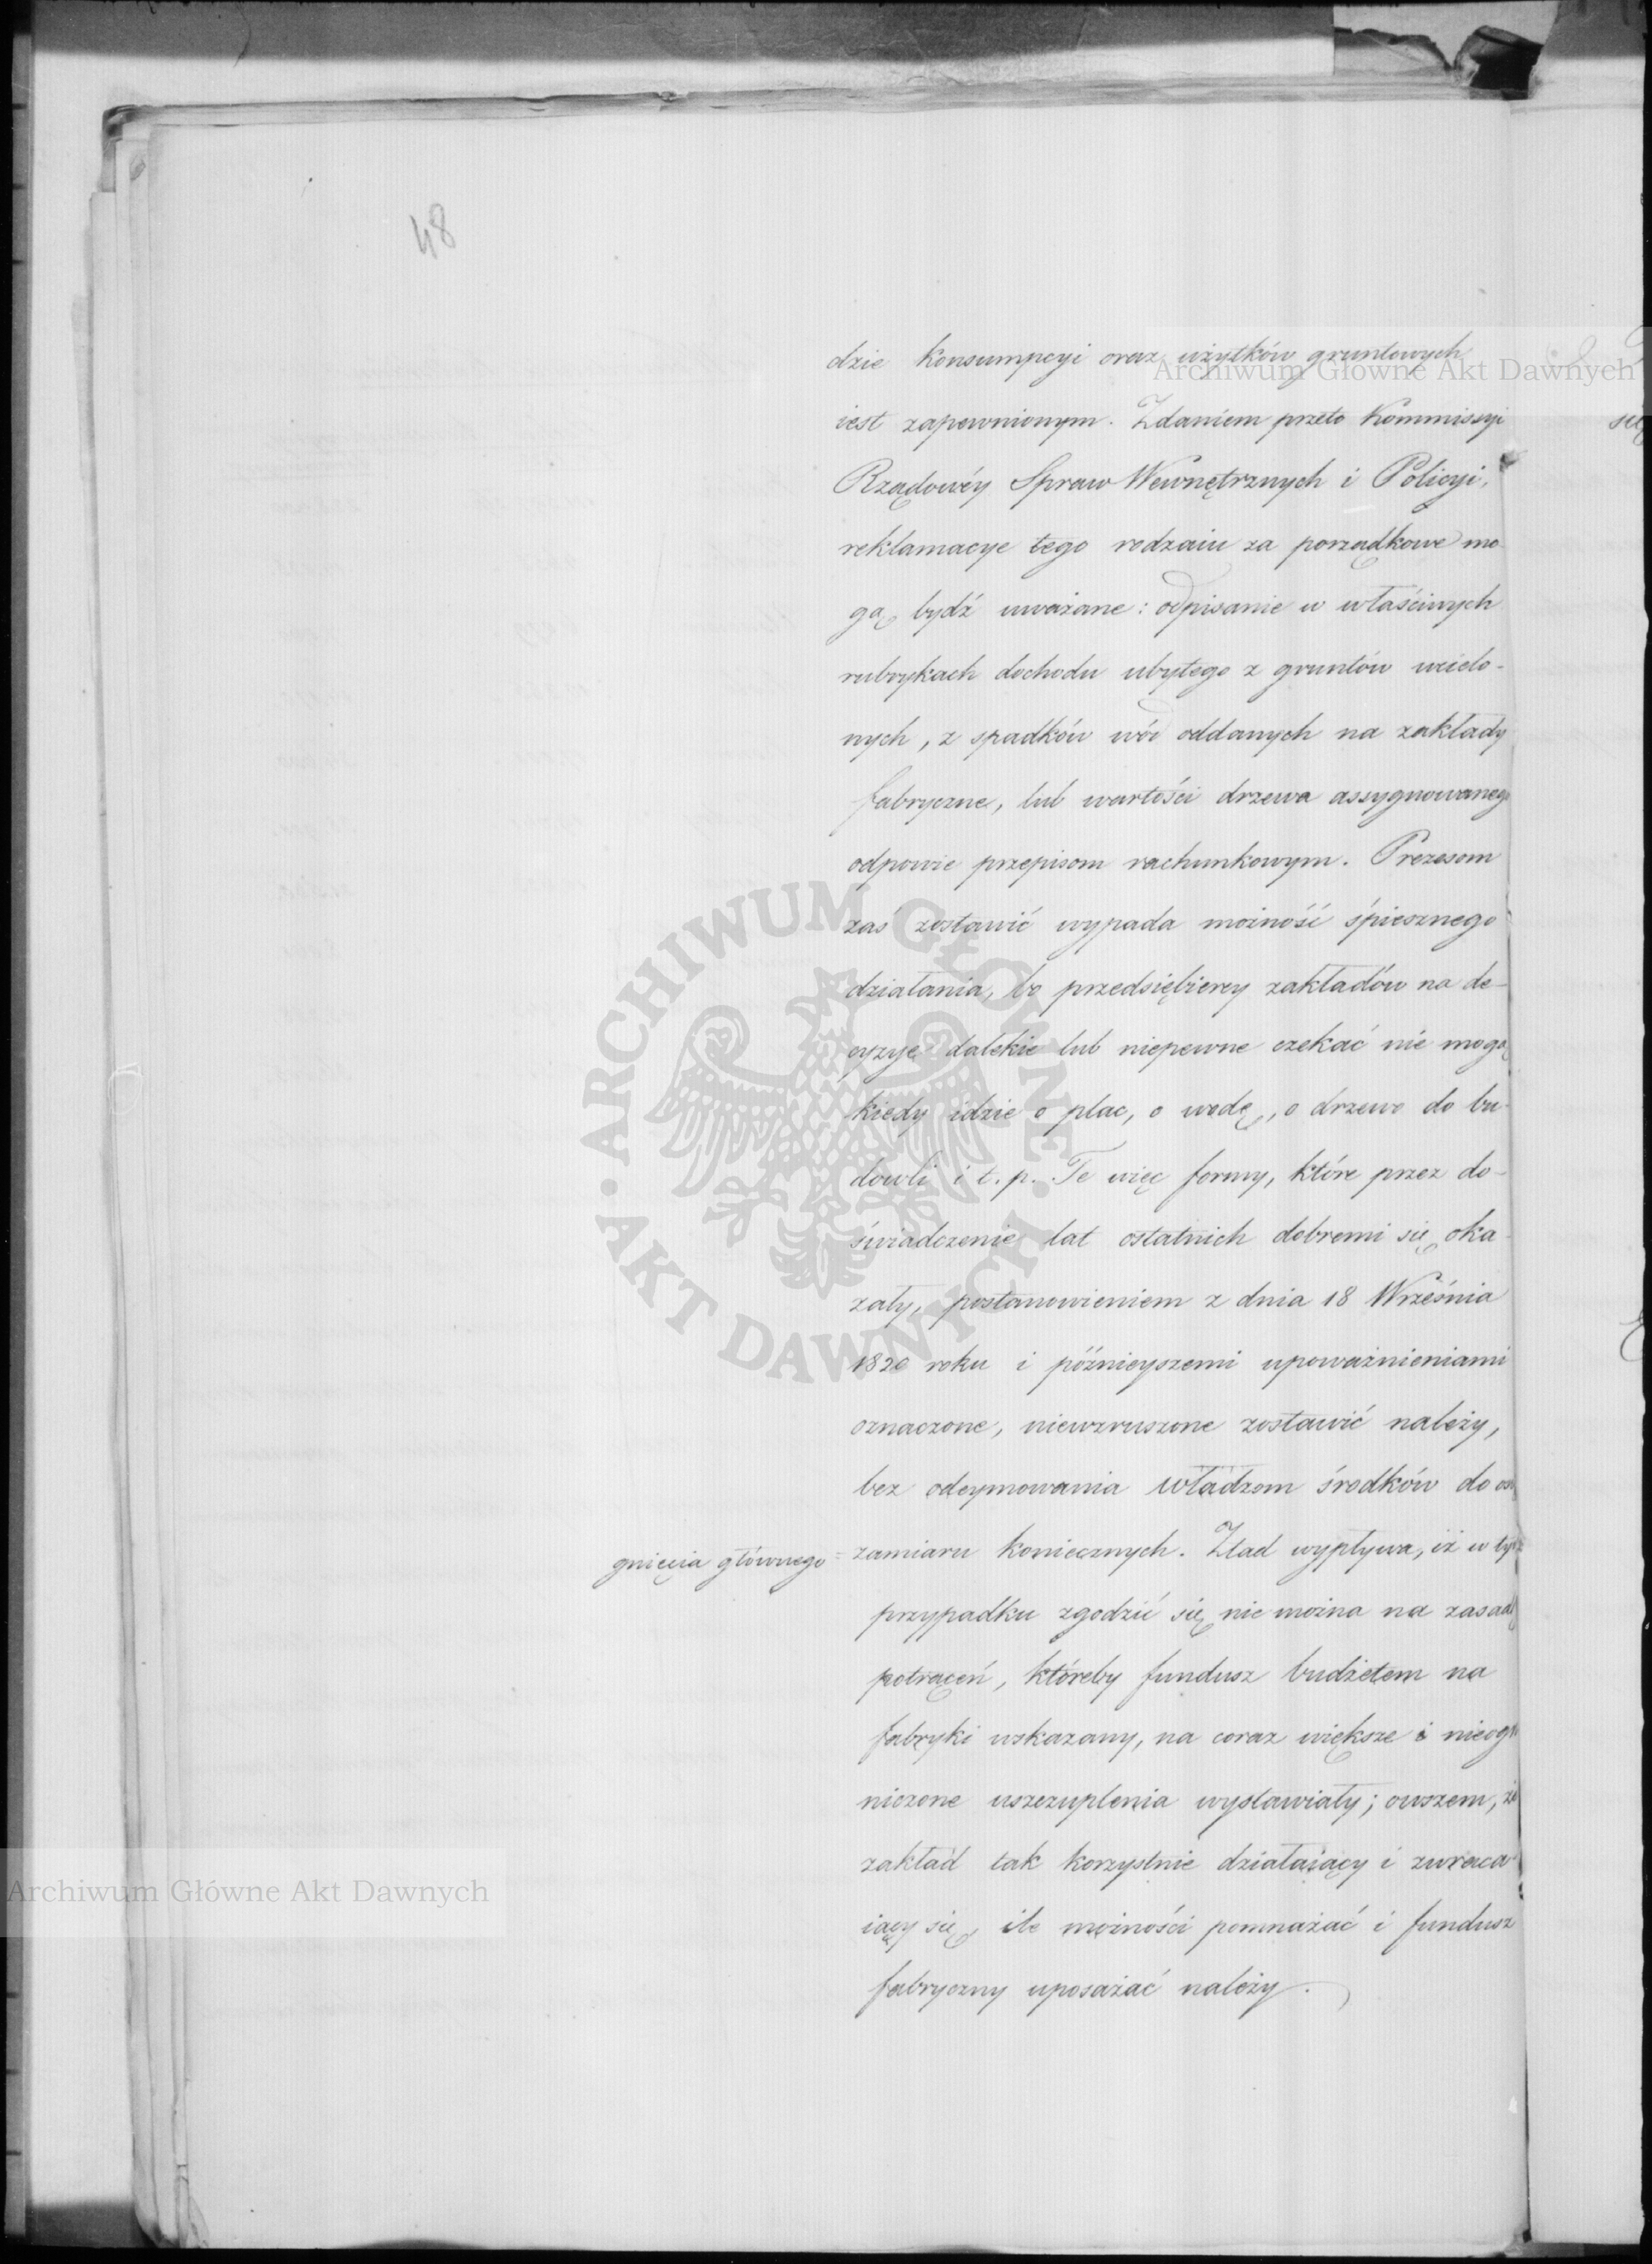 48
dzie konsumpcyi oraz użytków gruntowych
iest zapewnionym. Zdaniem przeto Kommissyi
Rządowéy Spraw Wewnętrznych i Policyi,
reklamacye tego rodzaiu za porządkowe mo
gą bydź uważane: odpisanie w właściwych
rubrykach dochodu ubytego z gruntów wcielo-
nych, z spadków wód oddanych na zakłady
fabryczne, lub wartości drzewa assygnowanego
odpowie przepisom rachunkowym. Prezesom
zaś zostawić wypada możność śpiesznego
działania, bo przedsiębiercy zakładów na de-
cyzye dalekie lub niepewne czekać nie mogą
kiedy idzie o plac, o wodę, o drzewo do bu-
dowli i t. p. Te więc formy, które przez do-
świadczenie lat ostatnich dobremi się oka
zały, postanowieniem z dnia 18 Września
1820 roku i późnieyszemi upoważnieniami
oznaczone, niewzruszone zostawić należy,
bez odeymowania władzom środków do osią
gnięcia głównego = zamiaru koniecznych. Ztad wypływa, iż w tym
przypadku zgodzić się nie można na zasadę
potrąceń, któreby fundusz budżetem na
fabryki wskazany, na coraz większe i nieogra
niczone uszczuplenia wystawiały; owszem, że
zakład tak korzystnie działaiący i zwraca
iący się, ile możności pomnażać i fundusz
fabryczny uposażać należy.
Archiwum Główne Akt Dawnych
Archiwum Główne Akt Dawnych
ARCHIWUM GŁÓWNE AKT DAWNYCH